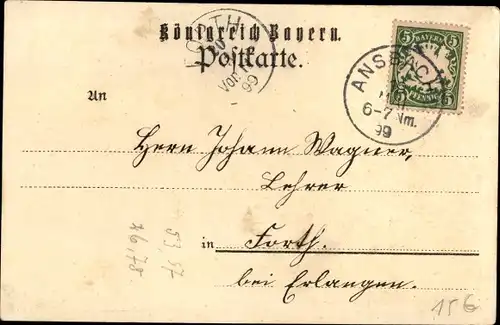 Königreich Bayern.
Postkarte.
FORTH
Vor.
99
5 BAYERN 5
5 PFENNIG 5
ANSBACH
6-7 Nm.
99
An
Herrn Johann Wagner,
Lehrer
in Forth.
bei Erlangen.
53,37
26,78
15 6